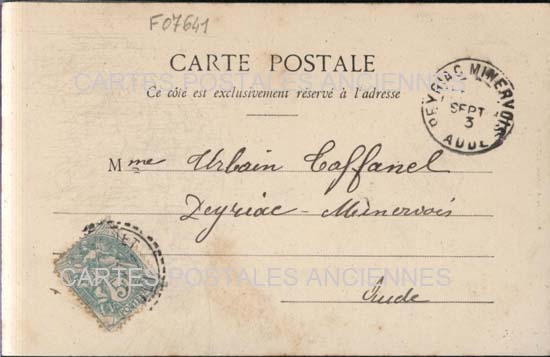 F07641
CARTE POSTALE
CARTES POSTALES ANCIENNES
Ce côté est exclusivement réservé à l'adresse
PEYRIAC MINERVOIS
SEPT
3
AUDE
Mme Urbain Caffanel
Peyriac-Minervois
CARTES POSTALES ANCIENNES
Aude